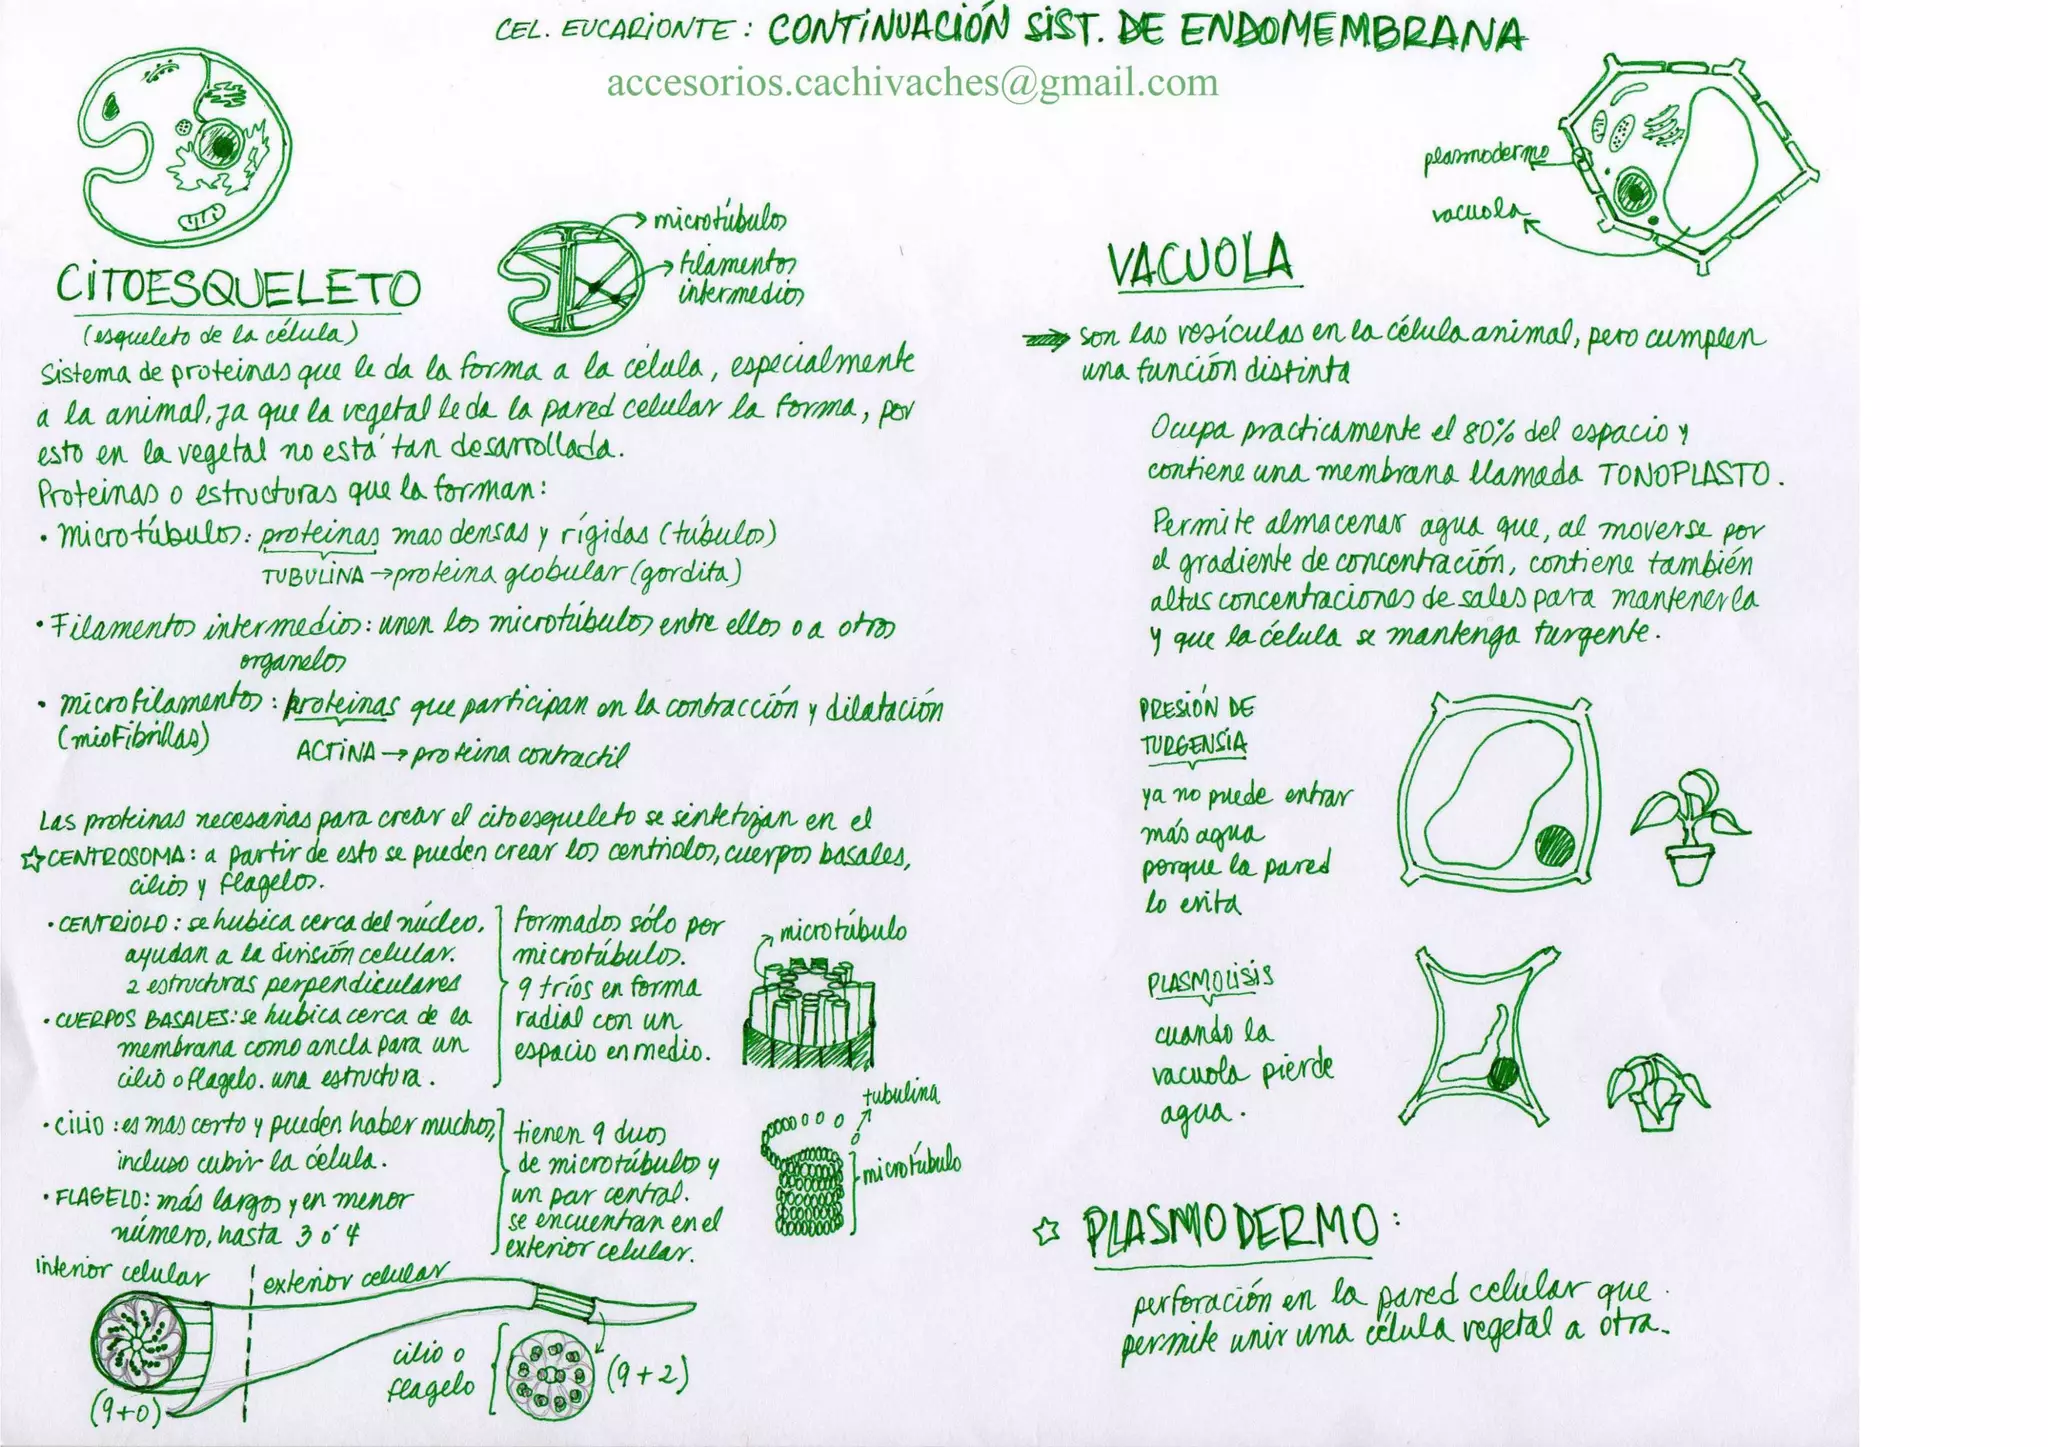 CEL. EUCARIONTE: CONTINUACIÓN SIST. DE ENDOMEMBRANA
accesorios.cachivaches@gmail.com
CITOESQUELETO
(esqueleto de la célula)
microtúbulos
filamentos
intermedios
Sistema de proteinas que le da la forma a la célula, especialmente
a la animal, ya que la vegetal le da la pared celular la forma, por
esto en la vegetal no está tan desarrollada.
Proteinas o estructuras que la forman:
• Microtúbulos: proteinas mas densas y rígidas (túbulo)
TUBULINA → proteina globular (gordita)
• Filamentos intermedios: unen los microtúbulos entre ellos o a otros
organelos
• microfilamentos: proteinas que participan en la contracción y dilatación
(miofibrillas)
ACTINA → proteina contractil
Las proteinas necesarias para crear el citoesqueleto se sintetizan en el
☆ CENTROSOMA: a partir de esto se pueden crear los centriolos, cuerpos basales,
cilios y flagelos.
• CENTRIOLO: se hubica cerca del núcleo,
ayudan a la división celular.
2 estructuras perpendiculares
• CUERPOS BASALES: se hubica cerca de la
membrana como ancla para un
cilio o flagelo. una estructura.
formados sólo por
microtúbulos.
9 tríos en forma
radial con un
espacio en medio.
microtúbulo
• CILIO: es mas corto y pueden haber muchos,
incluso cubrir la célula.
• FLAGELO: más largos y en menor
número, hasta 3 ó 4
tienen 9 duos
de microtúbulos y
un par central.
se encuentran en el
exterior celular.
tubulina
microtúbulo
interior celular
exterior celular
(9+0)
cilio o
flagelo
(9+2)
plasmodermo
vacuola
VACUOLA
⇒ son las vesículas en la célula animal, pero cumplen
una función distinta
Ocupa practicamente el 80% del espacio y
contiene una membrana llamada TONOPLASTO.
Permite almacenar agua que, al moverse por
el gradiente de concentración, contiene también
altas concentraciones de sales para mantenerla
y que la célula se mantenga turgente.
PRESIÓN DE
TURGENSIA
ya no puede entrar
más agua
porque la pared
lo evita
PLASMOLISIS
cuando la
vacuola pierde
agua.
☆ PLASMODERMO:
perforación en la pared celular que
permite unir una célula vegetal a otra.